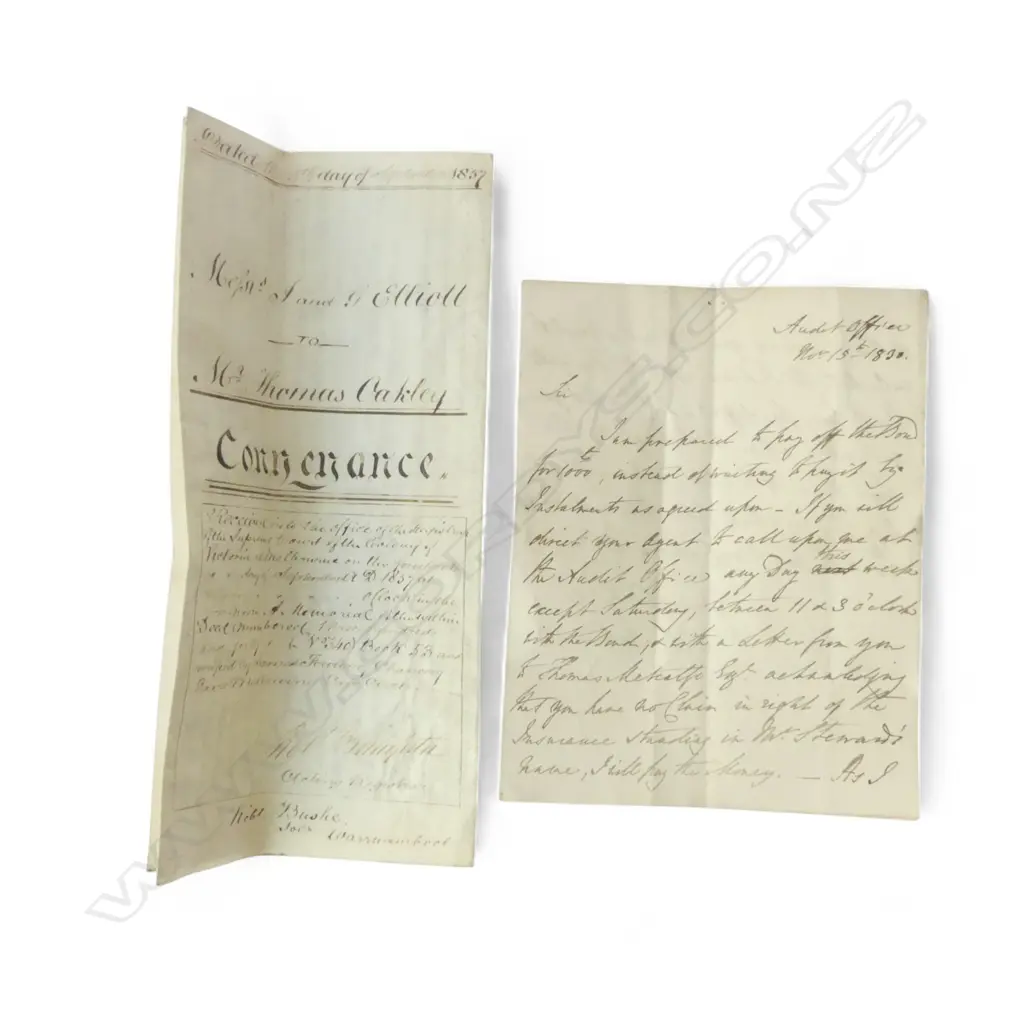 Dated day of 1857
Mess.rs J and G Elliott
TO
Mr. Thomas Oakley
Conveyance.
Received into the office of the Registrar
of the Supreme Court of the Colony of
Victoria at Melbourne on the
day of September A D 1857 at
o'clock in the
A Memorial of the within
Deed numbered
No. 540 Book 53 and
Clerk of Registrar
Robt. Bushe.
Solr Warrnambool
Audit Office
Nov. 15th 1830.
Sir
I am prepared to pay off the Bond
for 1000, instead of waiting to pay it by
Instalments as agreed upon - If you will
direct your Agent to call upon me at
the Audit Office any Day next this week
except Saturday, between 11 & 3 o'clock
with the Bond, & with a Letter from you
to Thomas Metcalfe Esqr. acknowledging
that you have no Claim in right of the
Insurance standing in Mr. Steward's
name, I will pay the Money. — As I
WWW.DORDYS.CO.NZ